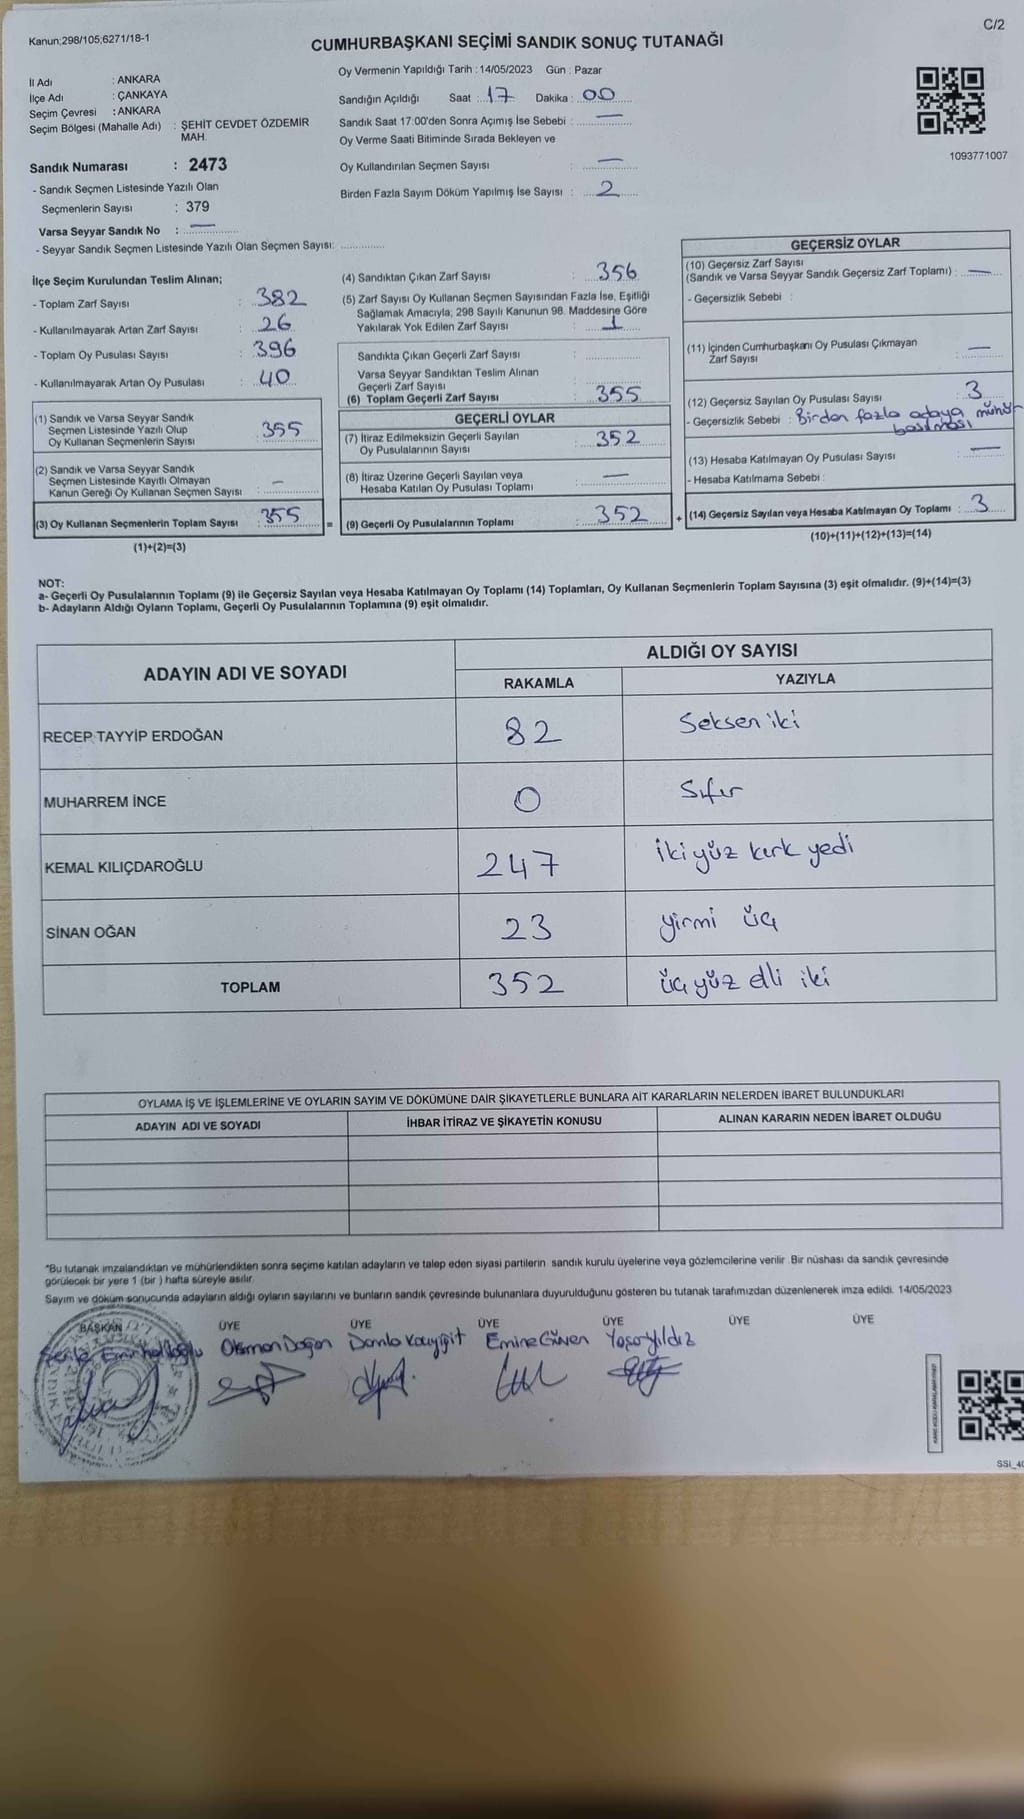 C/2
Kanun;298/105;6271/18-1
CUMHURBAŞKANI SEÇİMİ SANDIK SONUÇ TUTANAĞI
İl Adı : ANKARA
İlçe Adı : ÇANKAYA
Seçim Çevresi : ANKARA
Seçim Bölgesi (Mahalle Adı) : ŞEHİT CEVDET ÖZDEMİR
MAH.
Sandık Numarası : 2473
- Sandık Seçmen Listesinde Yazılı Olan
Seçmenlerin Sayısı : 379
Varsa Seyyar Sandık No : —
- Seyyar Sandık Seçmen Listesinde Yazılı Olan Seçmen Sayısı: ..............
Oy Vermenin Yapıldığı Tarih : 14/05/2023 Gün : Pazar
Sandığın Açıldığı Saat : 17 Dakika : 00
Sandık Saat 17:00'den Sonra Açımış İse Sebebi : —
Oy Verme Saati Bitiminde Sırada Bekleyen ve
Oy Kullandırılan Seçmen Sayısı : —
Birden Fazla Sayım Döküm Yapılmış İse Sayısı : 2
1093771007
İlçe Seçim Kurulundan Teslim Alınan;
- Toplam Zarf Sayısı : 382
- Kullanılmayarak Artan Zarf Sayısı : 26
- Toplam Oy Pusulası Sayısı : 396
- Kullanılmayarak Artan Oy Pusulası : 40
(1) Sandık ve Varsa Seyyar Sandık
Seçmen Listesinde Yazılı Olup
Oy Kullanan Seçmenlerin Sayısı : 355
(2) Sandık ve Varsa Seyyar Sandık
Seçmen Listesinde Kayıtlı Olmayan
Kanun Gereği Oy Kullanan Seçmen Sayısı : —
(3) Oy Kullanan Seçmenlerin Toplam Sayısı : 355
(1)+(2)=(3)
=
(4) Sandıktan Çıkan Zarf Sayısı : 356
(5) Zarf Sayısı Oy Kullanan Seçmen Sayısından Fazla İse, Eşitliği
Sağlamak Amacıyla; 298 Sayılı Kanunun 98. Maddesine Göre
Yakılarak Yok Edilen Zarf Sayısı : 1
Sandıkta Çıkan Geçerli Zarf Sayısı : ..............
Varsa Seyyar Sandıktan Teslim Alınan
Geçerli Zarf Sayısı : ..............
(6) Toplam Geçerli Zarf Sayısı : 355
GEÇERLİ OYLAR
(7) İtiraz Edilmeksizin Geçerli Sayılan
Oy Pusulalarının Sayısı : 352
(8) İtiraz Üzerine Geçerli Sayılan veya
Hesaba Katılan Oy Pusulası Toplamı : —
(9) Geçerli Oy Pusulalarının Toplamı : 352
+
GEÇERSİZ OYLAR
(10) Geçersiz Zarf Sayısı
(Sandık ve Varsa Seyyar Sandık Geçersiz Zarf Toplamı) : —
- Geçersizlik Sebebi :
(11) İçinden Cumhurbaşkanı Oy Pusulası Çıkmayan
Zarf Sayısı : —
(12) Geçersiz Sayılan Oy Pusulası Sayısı : 3
- Geçersizlik Sebebi : Birden fazla adaya mühür
basılması
(13) Hesaba Katılmayan Oy Pusulası Sayısı : —
- Hesaba Katılmama Sebebi :
(14) Geçersiz Sayılan veya Hesaba Katılmayan Oy Toplamı : 3
(10)+(11)+(12)+(13)=(14)
NOT:
a- Geçerli Oy Pusulalarının Toplamı (9) ile Geçersiz Sayılan veya Hesaba Katılmayan Oy Toplamı (14) Toplamları, Oy Kullanan Seçmenlerin Toplam Sayısına (3) eşit olmalıdır. (9)+(14)=(3)
b- Adayların Aldığı Oyların Toplamı, Geçerli Oy Pusulalarının Toplamına (9) eşit olmalıdır.
ADAYIN ADI VE SOYADI ALDIĞI OY SAYISI
RAKAMLA YAZIYLA
RECEP TAYYİP ERDOĞAN 82 Seksen iki
MUHARREM İNCE 0 Sıfır
KEMAL KILIÇDAROĞLU 247 iki yüz kırk yedi
SİNAN OĞAN 23 yirmi üç
TOPLAM 352 üç yüz elli iki
OYLAMA İŞ VE İŞLEMLERİNE VE OYLARIN SAYIM VE DÖKÜMÜNE DAİR ŞİKAYETLERLE BUNLARA AİT KARARLARIN NELERDEN İBARET BULUNDUKLARI
ADAYIN ADI VE SOYADI İHBAR İTİRAZ VE ŞİKAYETİN KONUSU ALINAN KARARIN NEDEN İBARET OLDUĞU
*Bu tutanak imzalandıktan ve mühürlendikten sonra seçime katılan adayların ve talep eden siyasi partilerin sandık kurulu üyelerine veya gözlemcilerine verilir. Bir nüshası da sandık çevresinde
görülecek bir yere 1 (bir ) hafta süreyle asılır.
Sayım ve döküm sonucunda adayların aldığı oyların sayılarını ve bunların sandık çevresinde bulunanlara duyurulduğunu gösteren bu tutanak tarafımızdan düzenlenerek imza edildi. 14/05/2023
BAŞKAN ÜYE ÜYE ÜYE ÜYE ÜYE ÜYE
Osman Doğan Damla Kayyiğit Emine Güven Yaşar Yıldız